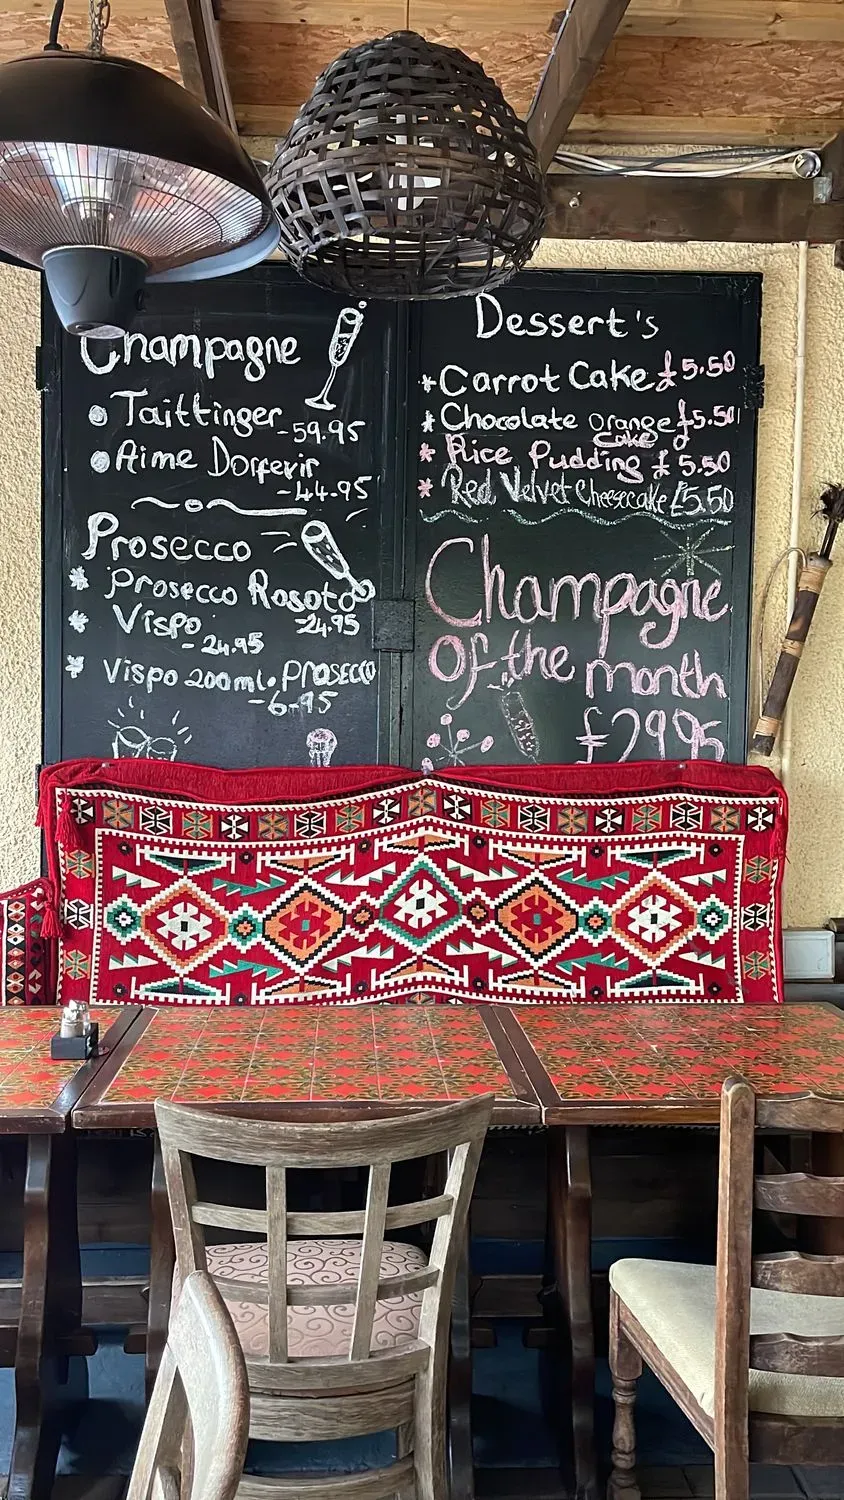 Champagne
Taittinger
-59.95
Aime Dorferir
-44.95
Prosecco
Prosecco Rosoto
-24.95
Vispo
-24.95
Vispo 200ml. Prosecco
-6-95
Dessert's
*Carrot Cake £5.50
*Chocolate Orange £5.50
Cake
*Rice Pudding £5.50
*Red Velvet Cheesecake £5.50
Champagne
Of the month
£29.95